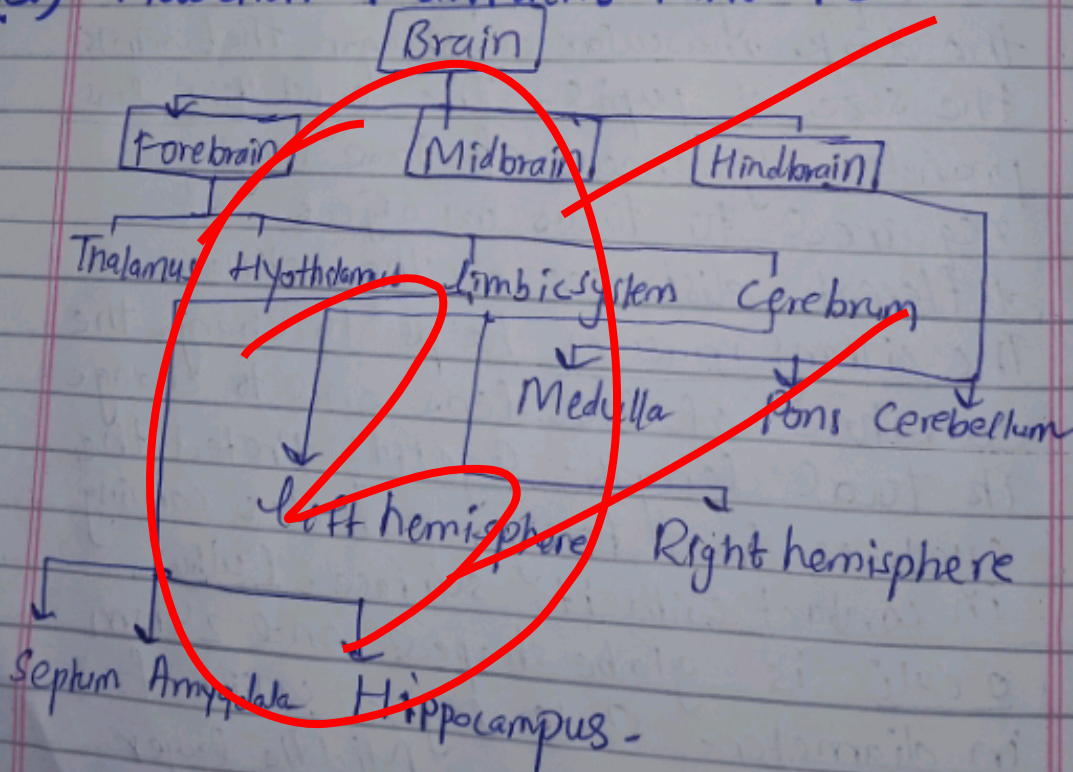 Brain
Forebrain Midbrain Hindbrain
Thalamus Hyothalamus Limbic system Cerebrum
Medulla Pons Cerebellum
Left hemisphere Right hemisphere
Septum Amygdala Hippocampus-
2